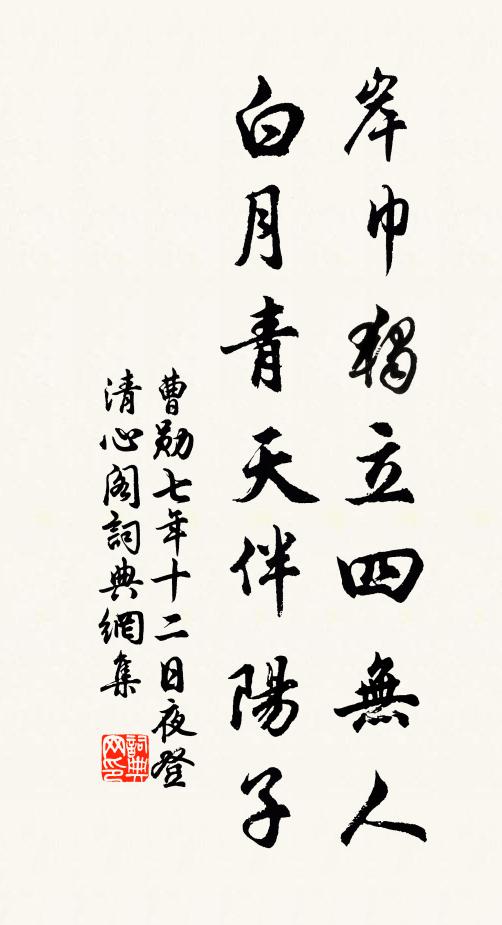 岸巾獨立四無人
白月青天伴陽子
曹勛七年十二日夜登
清心阁詞典網集
詞典
网印